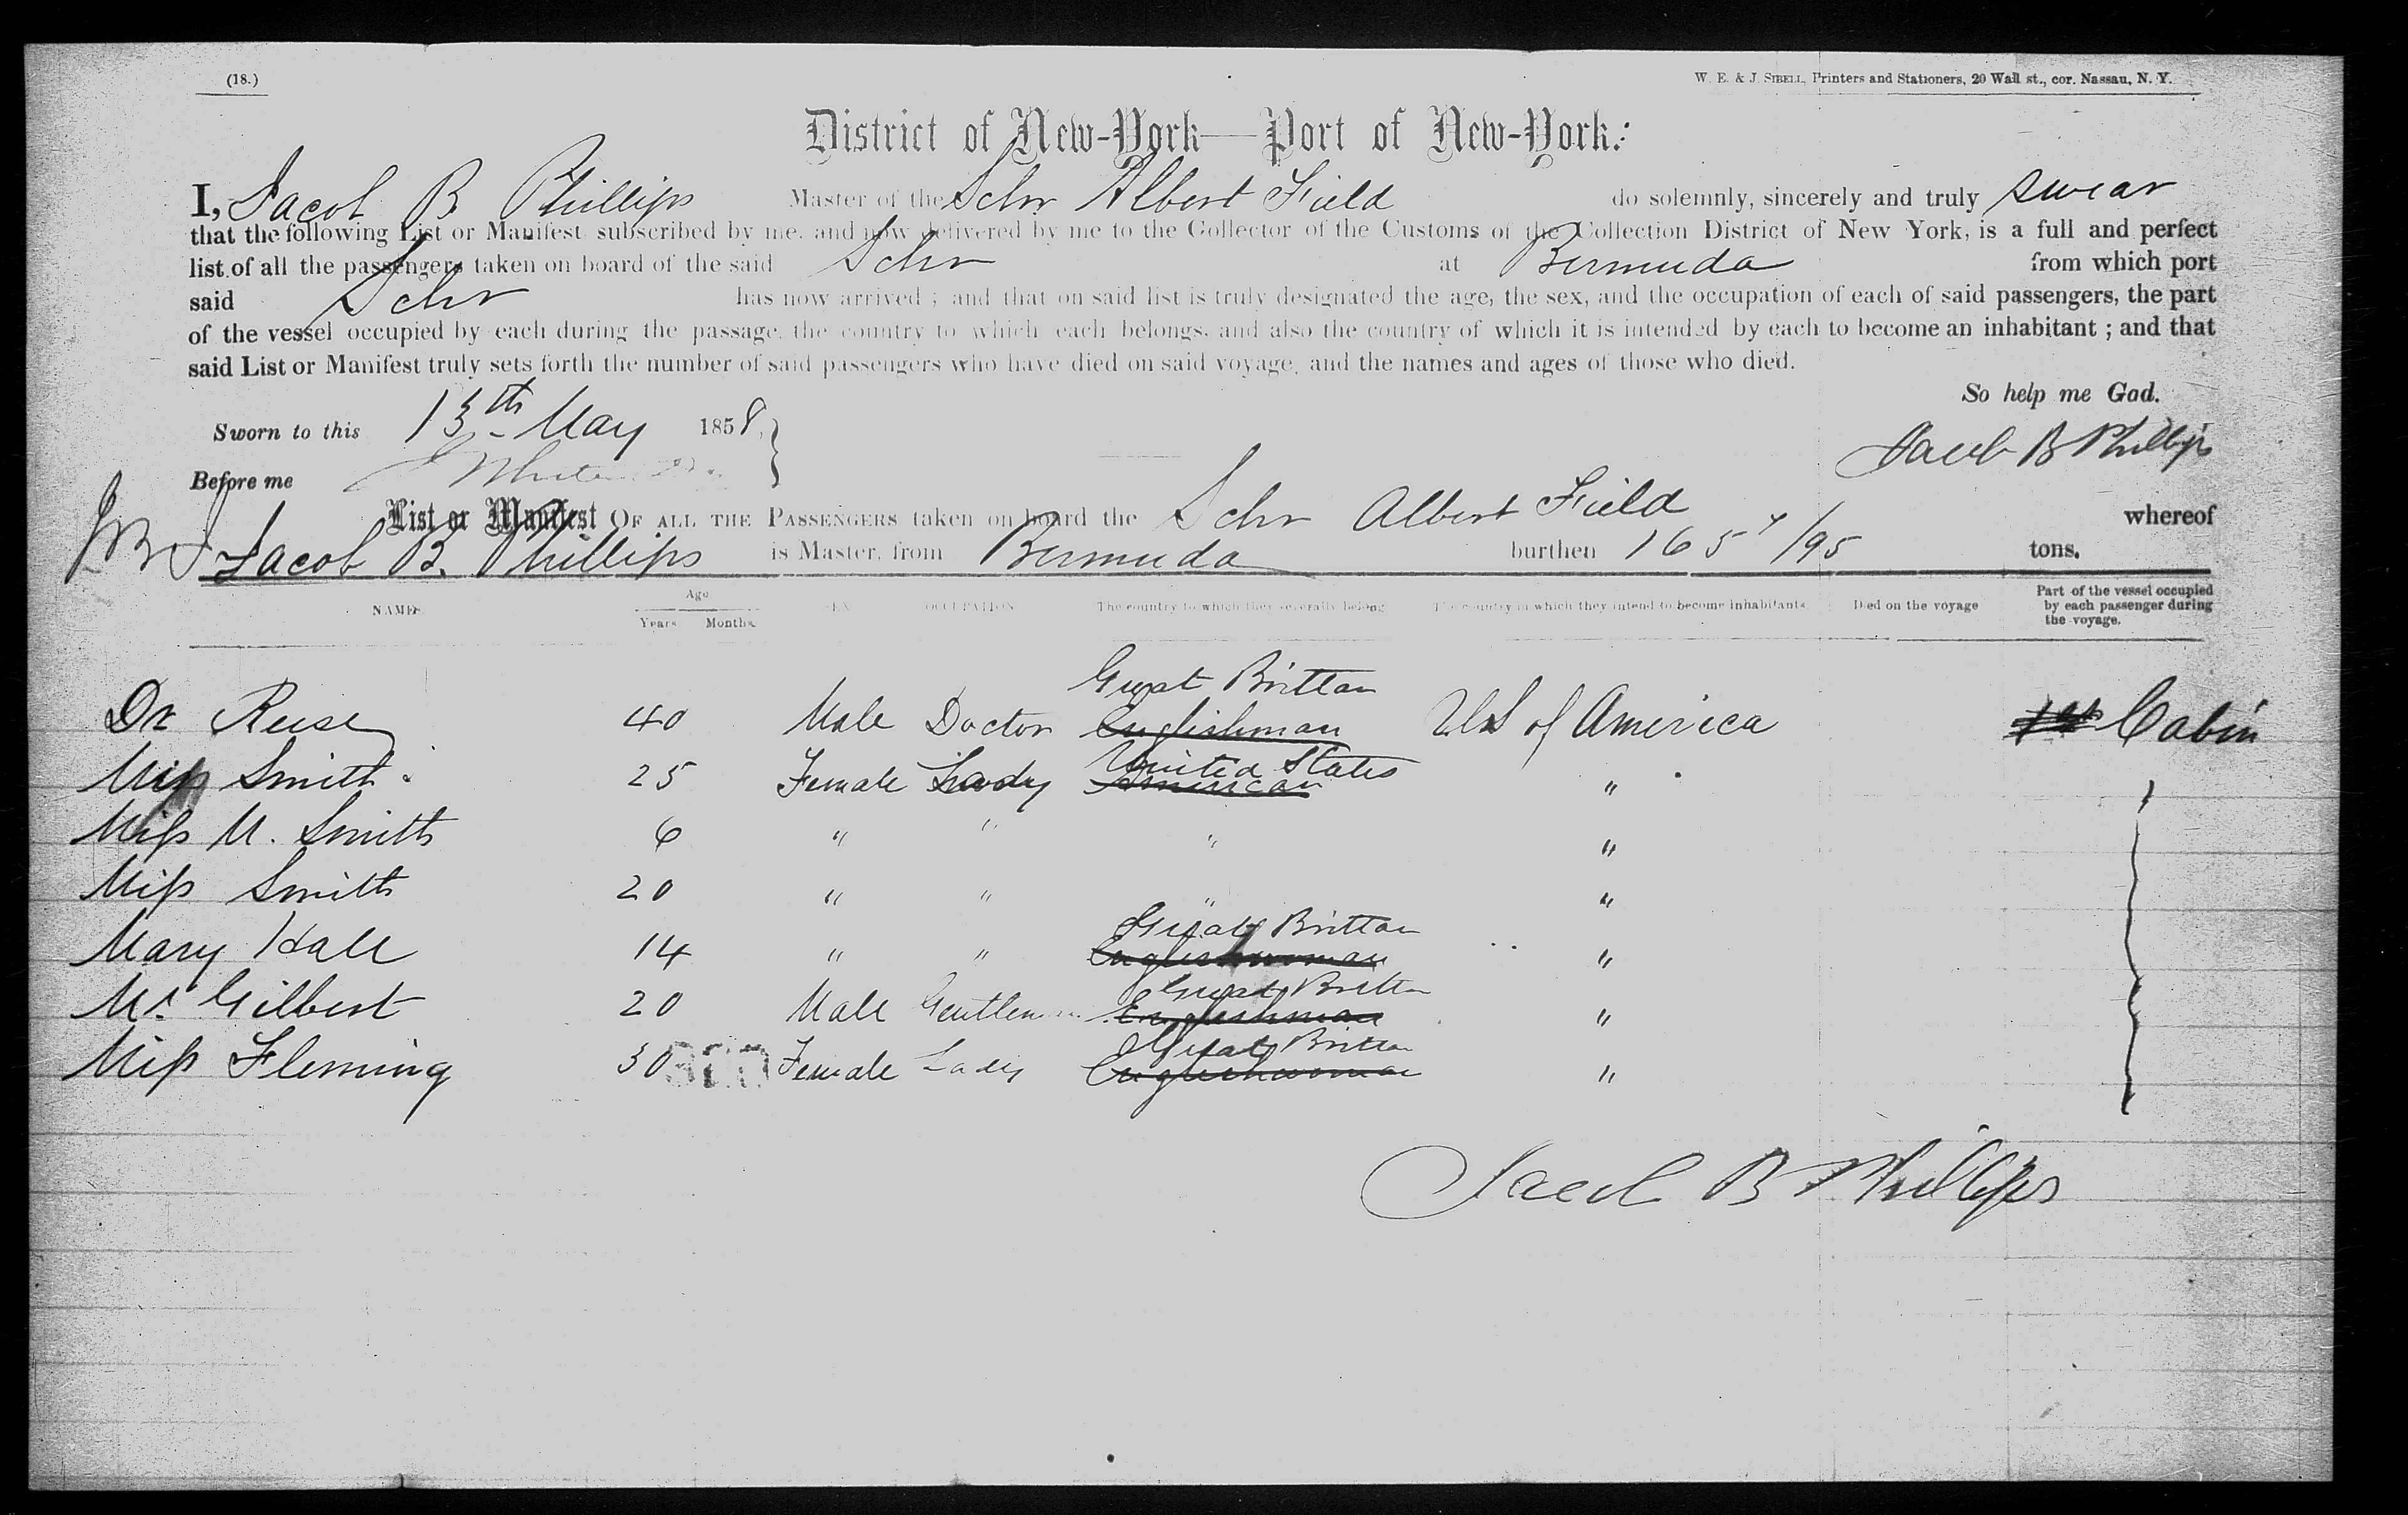 (18.)
W. E. & J. SIBELL, Printers and Stationers, 20 Wall st., cor. Nassau, N. Y.
District of New-York—Port of New-York:
I, Jacob B Phillips Master of the Schr Albert Field do solemnly, sincerely and truly swear
that the following List or Manifest subscribed by me, and now delivered by me to the Collector of the Customs of the Collection District of New York, is a full and perfect
list of all the passengers taken on board of the said Schr at Bermuda from which port
said Schr has now arrived ; and that on said list is truly designated the age, the sex, and the occupation of each of said passengers, the part
of the vessel occupied by each during the passage, the country to which each belongs, and also the country of which it is intended by each to become an inhabitant ; and that
said List or Manifest truly sets forth the number of said passengers who have died on said voyage, and the names and ages of those who died.
So help me God.
Sworn to this 13th May 1858,
Jacob B Phillips
Before me
List or Manifest OF ALL THE PASSENGERS taken on board the Schr Albert Field whereof
Jacob B. Phillips is Master, from Bermuda burthen 165 /95 tons.
NAMES Age Years Months SEX OCCUPATION The country to which they severally belong The country in which they intend to become inhabitants Died on the voyage Part of the vessel occupied by each passenger during the voyage.
Great Brittan
Dr Reese 40 Male Doctor Englishman US of America 1st Cabin
United States
Miss Smith 25 Female Lady American "
Miss M. Smith 6 " " " "
Miss Smith 20 " " " "
Great Brittan
Mary Hall 14 " " Englishwoman "
Great Brittan
Mr. Gilbert 20 Male Gentleman Englishman "
Great Brittan
Miss Fleming 30 Female Lady Englishwoman "
Jacob B Phillips